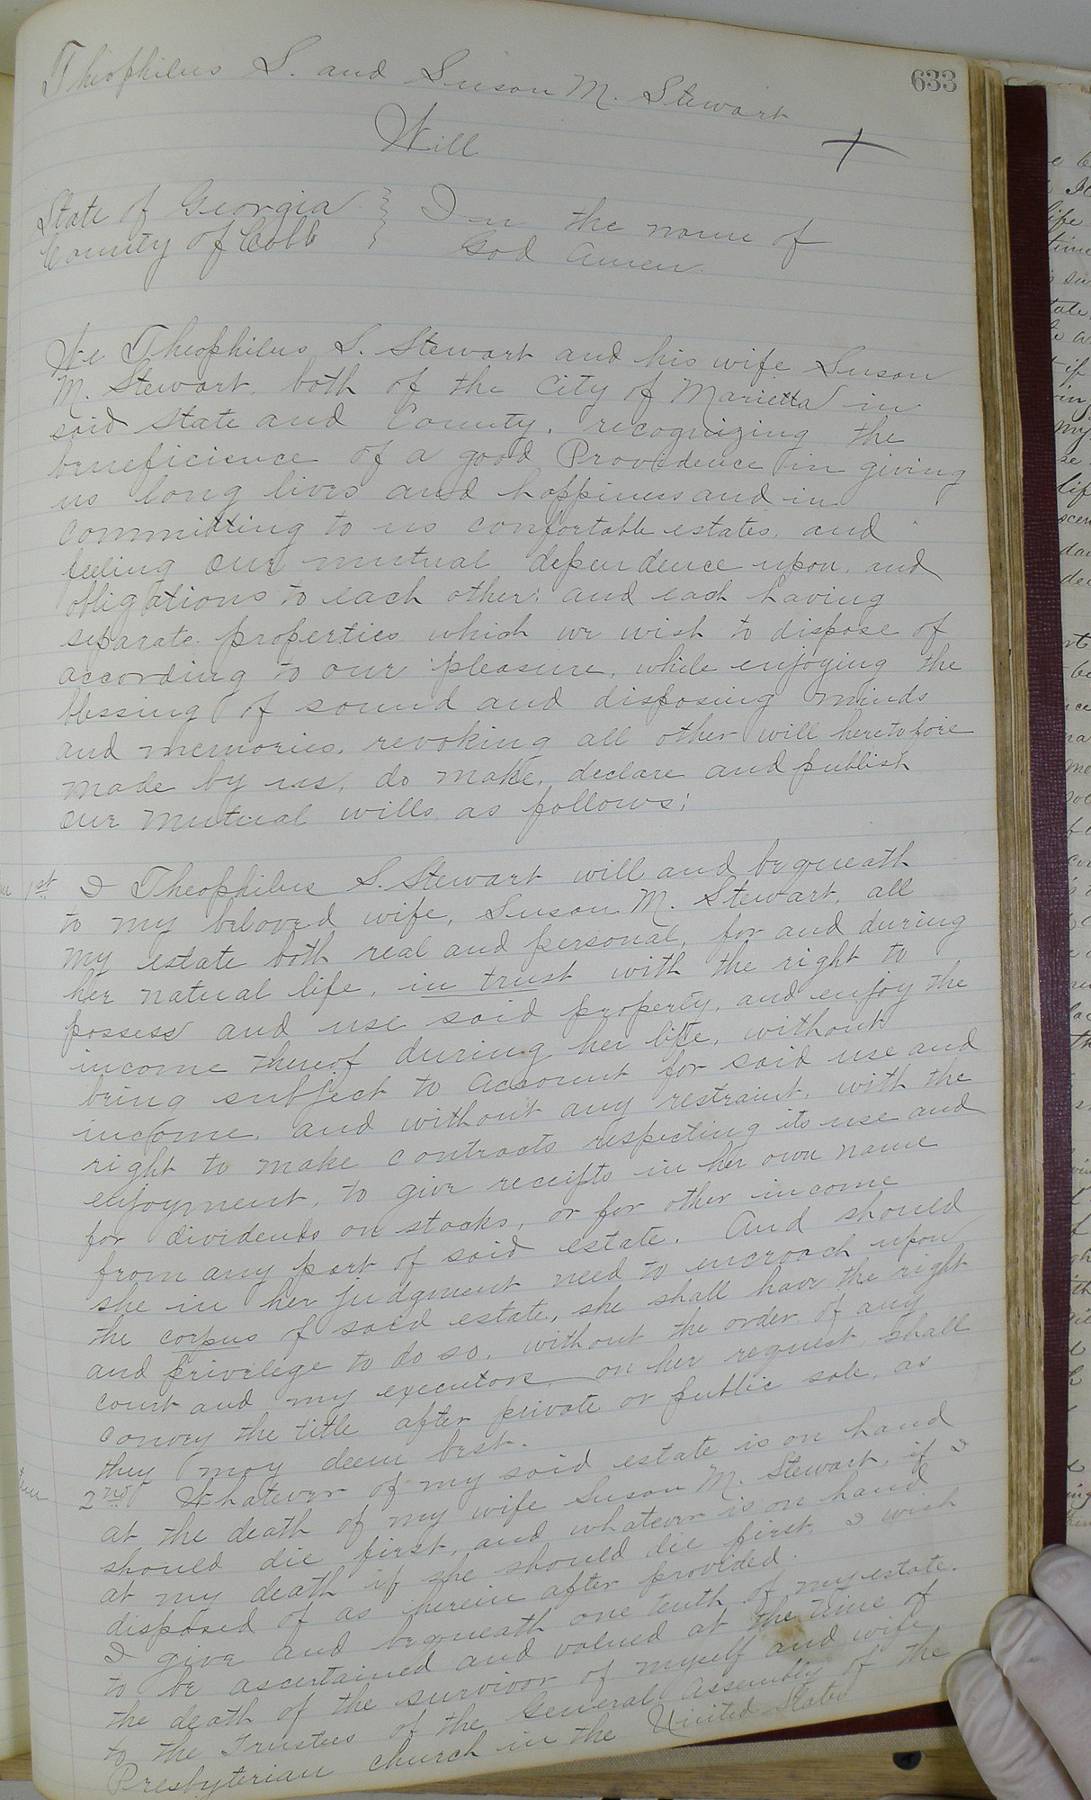 633
Theophilus S. and Susan M. Stewart
Will
State of Georgia } In the name of
County of Cobb } God Amen.
We Theophilus S. Stewart and his wife Susan
M. Stewart, both of the City of Marietta in
said State and County, recognizing the
beneficience of a good Providence in giving
us long lives and happiness and in
committing to us confortable estates, and
feeling our mutual dependence upon, and
obligations to each other; and each having
separate properties which we wish to dispose of
according to our pleasure, while enjoying the
blessing of sound and disposing minds
and memories, revoking all other will heretofore
made by us, do make, declare and publish
our mutual wills as follows;
1st I Theophilus S. Stewart will and bequeath
to my beloved wife, Susan M. Stewart, all
my estate both real and personal, for and during
her natural life, in trust with the right to
possess and use said property, and enjoy the
income thereof during her life, without
being subject to account for said use and
income, and without any restraint, with the
right to make contracts respecting its use and
enjoyment, to give receipts in her own name
for dividends on stocks, or for other income
from any part of said estate. And should
she in her judgment need to encroach upon
the corpus of said estate, she shall have the right
and privilege to do so, without the order of any
court and my executors, on her request, shall
convey the title after private or public sale, as
they may deem best.
2nd Whatever of my said estate is on hand
at the death of my wife Susan M. Stewart, if I
should die first, and whatever is on hand
at my death if she should die first I wish
disposed of as herein after provided.
I give and bequeath one tenth of my estate.
to be ascertained and valued at the time of
the death of the survivor of myself and wife
to the Trustees of the General Assembly of the
Presbyterian church in the United States